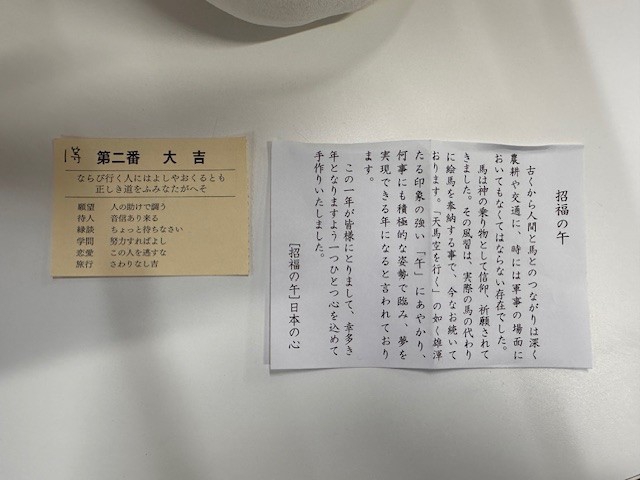 1等
第二番 大吉
ならび行く人にはよしやおくるとも
正しき道をふみなたがへそ
願望 人の助けで調う
待人 音信あり来る
縁談 ちょっと待ちなさい
学問 努力すればよし
恋愛 この人を逃すな
旅行 さわりなし吉
招福の午
古くから人間と馬とのつながりは深く
農耕や交通に、時には軍事の場面に
おいてもなくてはならない存在でした。
馬は神の乗り物として信仰、祈願されて
きました。その風習は、実際の馬の代わり
に絵馬を奉納する事で、今なお続いて
おります。「天馬空を行く」の如く雄渾
たる印象の強い「午」にあやかり、
何事にも積極的な姿勢で臨み、夢を
実現できる年になると言われており
ます。
この一年が皆様にとりまして、幸多き
年となりますよう一つひとつ心を込めて
手作りいたしました。
[招福の午]日本の心